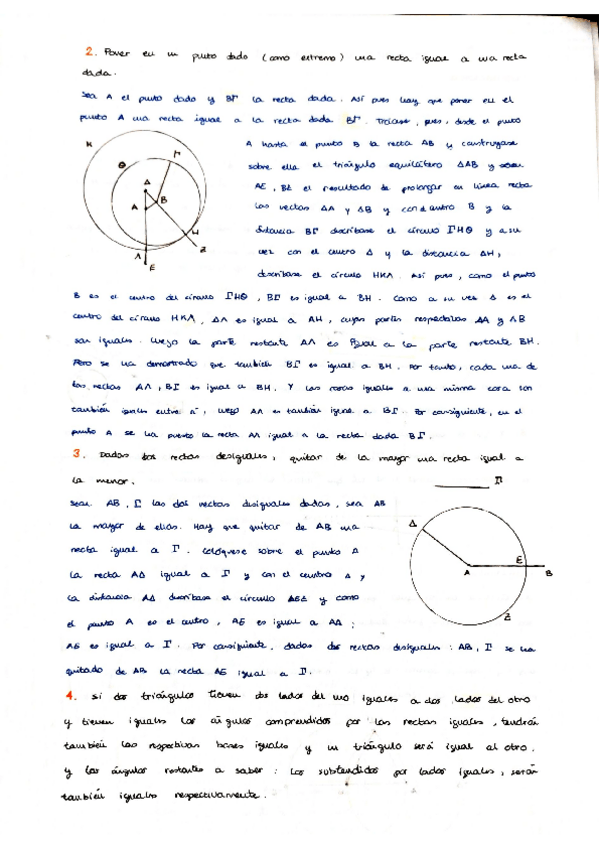 2. Poner en un punto dado (como extremo) una recta igual a una recta
dada.
Sea A el punto dado y BΓ la recta dada. Así pues hay que poner en el
punto A una recta igual a la recta dada BΓ. Trácese, pues, desde el punto
A hasta el punto B la recta AB y constrúyase
sobre ella el triángulo equilátero ΔAB y sean
AE, BZ el resultado de prolongar en línea recta
las rectas ΔA y ΔB y con el centro B y la
distancia BΓ descríbase el círculo ΓHΘ y a su
vez con el centro Δ y la distancia ΔH,
descríbase el círculo HKΛ. Así pues, como el punto
B es el centro del círculo ΓHΘ, BΓ es igual a BH. Como a su vez Δ es el
centro del círculo HKΛ, ΔΛ es igual a ΔH, cuyas partes respectivas ΔA y ΔB
son iguales. Luego la parte restante AΛ es igual a la parte restante BH.
Pero se ha demostrado que también BΓ es igual a BH. Por tanto, cada una de
las rectas AΛ, BΓ es igual a BH. Y las cosas iguales a una misma cosa son
también iguales entre sí, luego AΛ es también igual a BΓ. Por consiguiente, en el
punto A se ha puesto la recta AΛ igual a la recta dada BΓ.
K
Θ
Γ
Δ
A
B
H
Λ
Z
E
3. Dadas dos rectas desiguales, quitar de la mayor una recta igual a
la menor.
Γ
Sean AB, Γ las dos rectas desiguales dadas, sea AB
la mayor de ellas. Hay que quitar de AB una
recta igual a Γ. Colóquese sobre el punto A
la recta AΔ igual a Γ y con el centro A y
la distancia AΔ descríbase el círculo ΔEZ y como
el punto A es el centro, AE es igual a AΔ;
AE es igual a Γ. Por consiguiente, dadas dos rectas desiguales: AB, Γ se ha
quitado de AB la recta AE igual a Γ.
Δ
E
A
B
Z
4. Si dos triángulos tienen dos lados del uno iguales a dos lados del otro
y tienen iguales los ángulos comprendidos por las rectas iguales, tendrán
también las respectivas bases iguales y un triángulo será igual al otro.
y los ángulos restantes a saber: los subtendidos por lados iguales, serán
también iguales respectivamente.